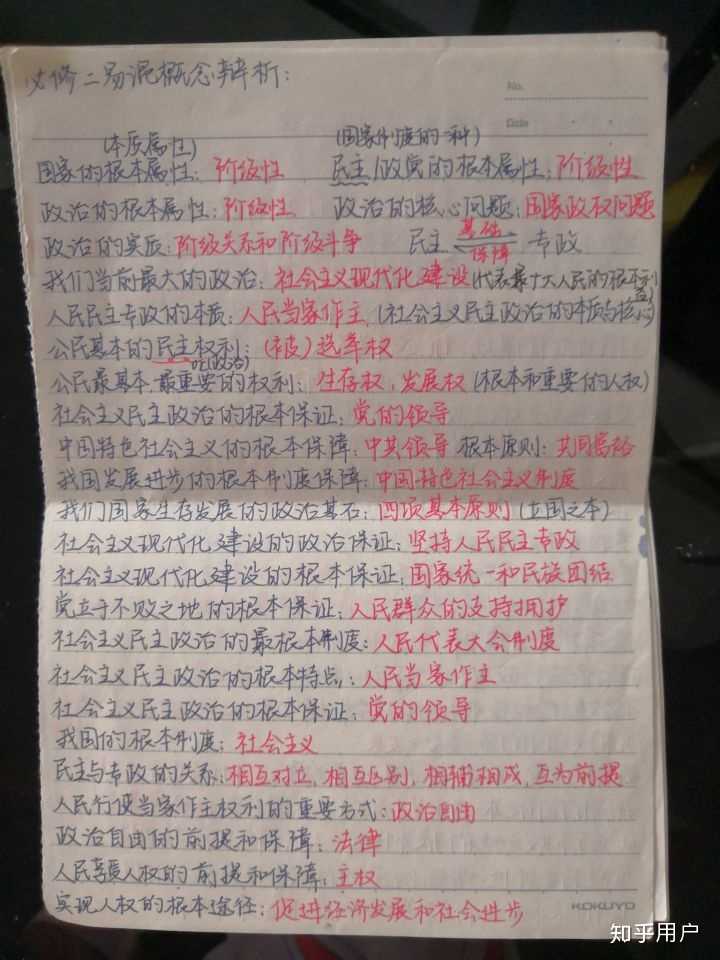 必修二易混概念辩析：
No.
Date
(本质属性) (国家制度的一种)
国家的根本属性：阶级性 民主/政党的根本属性：阶级性
政治的根本属性：阶级性 政治的核心问题：国家政权问题
政治的实质：阶级关系和阶级斗争 民主 基础 保障 专政
我们当前最大的政治：社会主义现代化建设(代表最广大人民的根本利益)
人民民主专政的本质：人民当家作主 (社会主义民主政治的本质与核心)
公民基本的民主权利：(被)选举权
or(政治)
公民最基本.最重要的权利：生存权，发展权(根本和重要的人权)
社会主义民主政治的根本保证：党的领导
中国特色社会主义的根本保障：中共领导 根本原则：共同富裕
我国发展进步的根本制度保障：中国特色社会主义制度
我们国家生存发展的政治基石：四项基本原则(立国之本)
社会主义现代化建设的政治保证：坚持人民民主专政
社会主义现代化建设的根本保证：国家统一和民族团结
党立于不败之地的根本保证：人民群众的支持拥护
社会主义民主政治的最根本制度：人民代表大会制度
社会主义民主政治的根本特点：人民当家作主
社会主义民主政治的根本保证：党的领导
我国的根本制度：社会主义
民主与专政的关系：相互对立，相互区别，相辅相成，互为前提
人民行使当家作主权利的重要方式：政治自由
政治自由的前提和保障：法律
人民享受人权的前提和保障：主权
实现人权的根本途径：促进经济发展和社会进步
KOKUYO
知乎用户